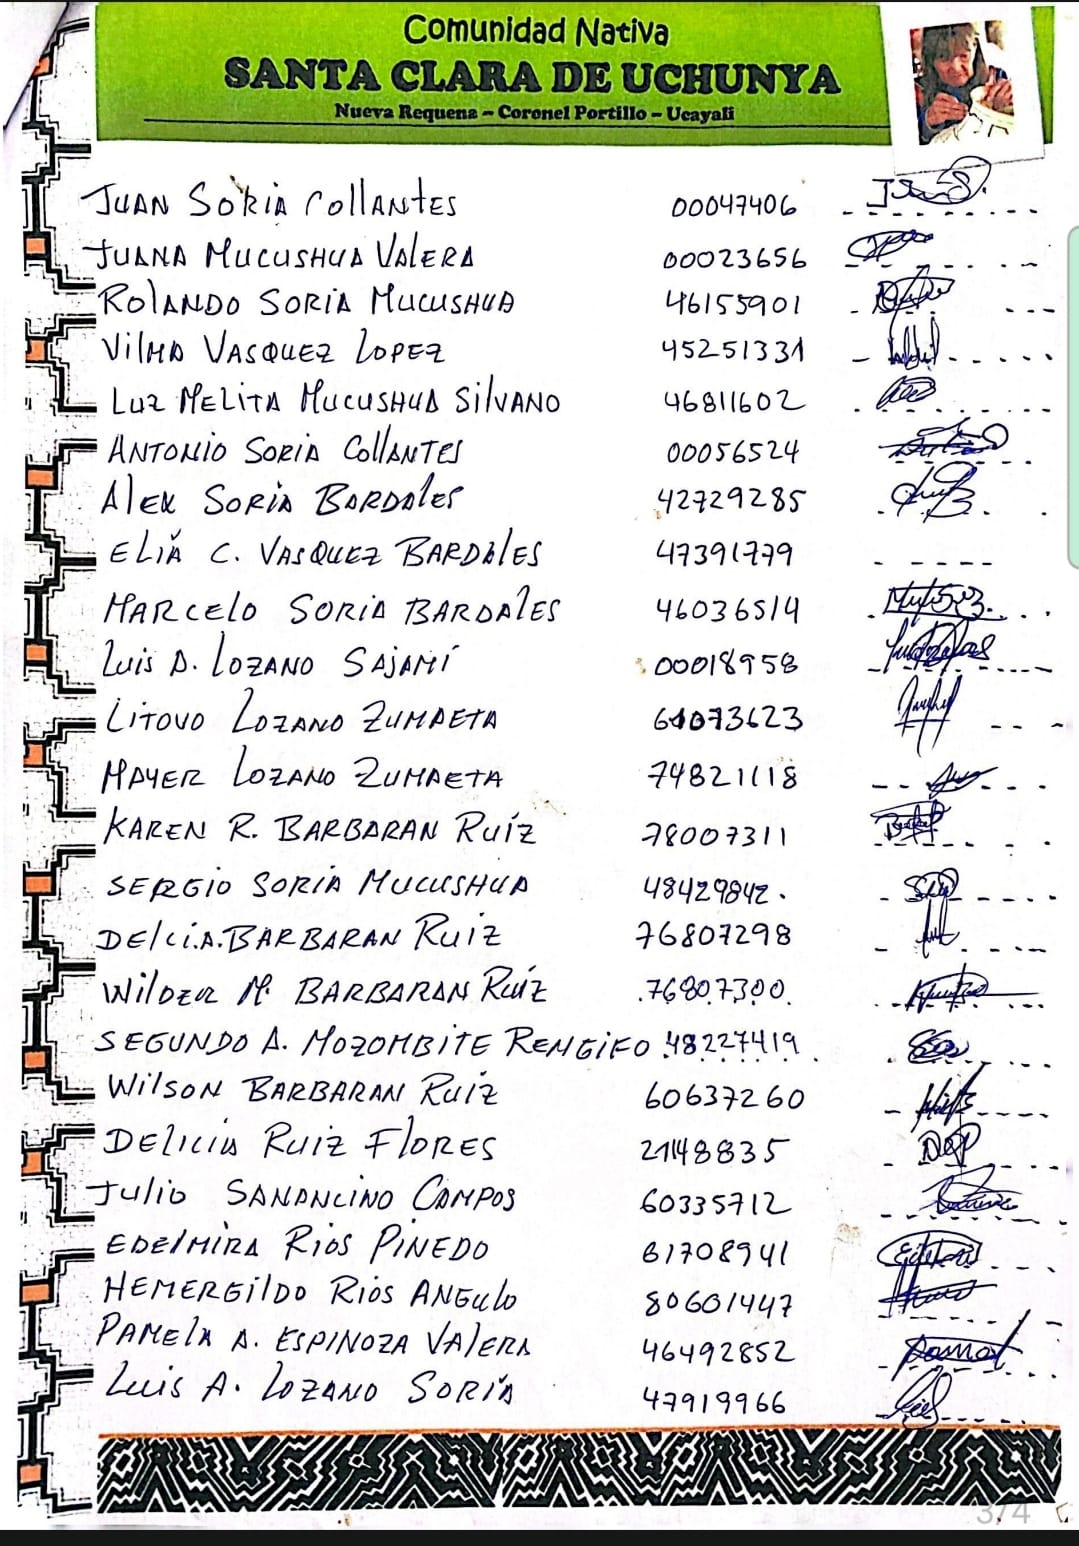 Comunidad Nativa
SANTA CLARA DE UCHUNYA
Nueva Requena – Coronel Portillo – Ucayali
JUAN SORIA COLLANTES 00047406
JUANA MUCUSHUA VALERA 00023656
ROLANDO SORIA MUCUSHUA 46155901
VILMA VASQUEZ LOPEZ 45251331
LUZ MELITA MUCUSHUA SILVANO 46811602
ANTONIO SORIA COLLANTES 00056524
ALEX SORIA BARDALES 42729285
ELIÁ C. VASQUEZ BARDALES 47391779
MARCELO SORIA BARDALES 46036514
LUIS D. LOZANO SAJAMÍ 00018958
LITOVO LOZANO ZUMAETA 61073623
MAYER LOZANO ZUMAETA 74821118
KAREN R. BARBARAN RUÍZ 78007311
SERGIO SORIA MUCUSHUA 48429842.
DELCI.A. BARBARAN RUIZ 76807298
WILDER M. BARBARAN RUÍZ 76807300.
SEGUNDO A. MOZOMBITE RENGIFO 48227419
WILSON BARBARAN RUIZ 60637260
DELICIA RUIZ FLORES 21148835
JULIO SANANCINO CAMPOS 60335712
EDELMIRA RIOS PINEDO 61708941
HEMERGILDO RIOS ANGULO 80601447
PAMELA A. ESPINOZA VALERA 46492852
LUIS A. LOZANO SORIA 47919966
3/4